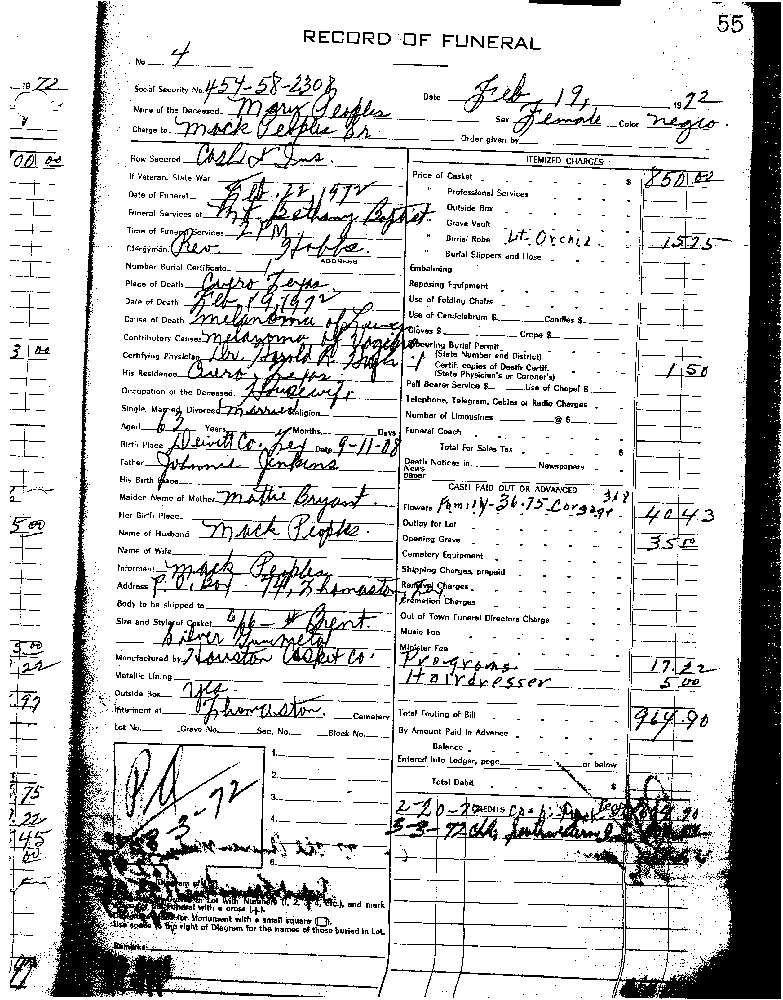 55
RECORD OF FUNERAL
No. 4
19 72
Social Security No. 454-58-2308 Date Feb 19, 1972
Name of the Deceased Mary Peoples Sex Female Color negro.
Charge to Mack Peoples Sr. Order given by
How Secured Cash & Ins.
If Veteran, State War
Date of Funeral Feb. 22, 1972
Funeral Services at Mt. Bethany Baptist.
Time of Funeral Services 2 PM
Clergyman Rev. Hobbs
ADDRESS
Number Burial Certificate
Place of Death Cuero Texas
Date of Death Feb, 19, 1972
Cause of Death melanoma of
Contributory Causes melanoma of
Certifying Physician Dr.
His Residence Cuero, Texas
Occupation of the Deceased Housewife
Single, Married, Divorced Married Religion
Aged 63 Years Months Days
Birth Place Dewitt Co. Tex Date 9-11-08
Father Johnnie Jenkins
His Birth Place
Maiden Name of Mother Mattie Bryant.
Her Birth Place
Name of Husband Mack Peoples.
Name of Wife
Informant Mack Peoples
Address P. O. Box 74, Thomaston, Tex
Body to be shipped to
Size and Style of Casket 6/6 - # Brent.
Silver Gunmetal
Manufactured by Houston Casket Co.
Metallic Lining
Outside Box Yes
Interment at Thomaston. Cemetery
Lot No. Grave No. Sec. No. Block No.
Pd
3-3-72
1
2
3
4
6
Lot with Numbers (1, 2, etc.), and mark
Funeral with a cross
for Monument with a small square
Use space to the right of Diagram for the names of those buried in Lot.
Remarks
ITEMIZED CHARGES
Price of Casket $ 850 00
" Professional Services
" Outside Box
" Grave Vault
" Burial Robe Lt. Orchid 15 75
" Burial Slippers and Hose
Embalming
Reposing Equipment
Use of Folding Chairs
Use of Candelabrum $ Candles $
Gloves $ Crape $
Securing Burial Permit
(State Number and District)
Certif. copies of Death Certif. 1 50
(State Physician's or Coroner's)
Pall Bearer Service $ Use of Chapel $
Telephone, Telegram, Cables or Radio Charges
Number of Limousines @ $
Funeral Coach
Total For Sales Tax $
Death Notices in Newspapers
CASH PAID OUT OR ADVANCED
Flowers Family-36.75 Corsage 3.68 40 43
Outlay for Lot
Opening Grave 35 00
Cemetery Equipment
Shipping Charges, prepaid
Removal Charges
Cremation Charges
Out of Town Funeral Directors Charge
Music Fee
Minister Fee
Programs 17.22
Hairdresser 5 00
Total Footing of Bill 964.90
By Amount Paid in Advance
Balance
Entered into Ledger, page or below
Total Debit $
CREDITS
3-3-72 Southwestern